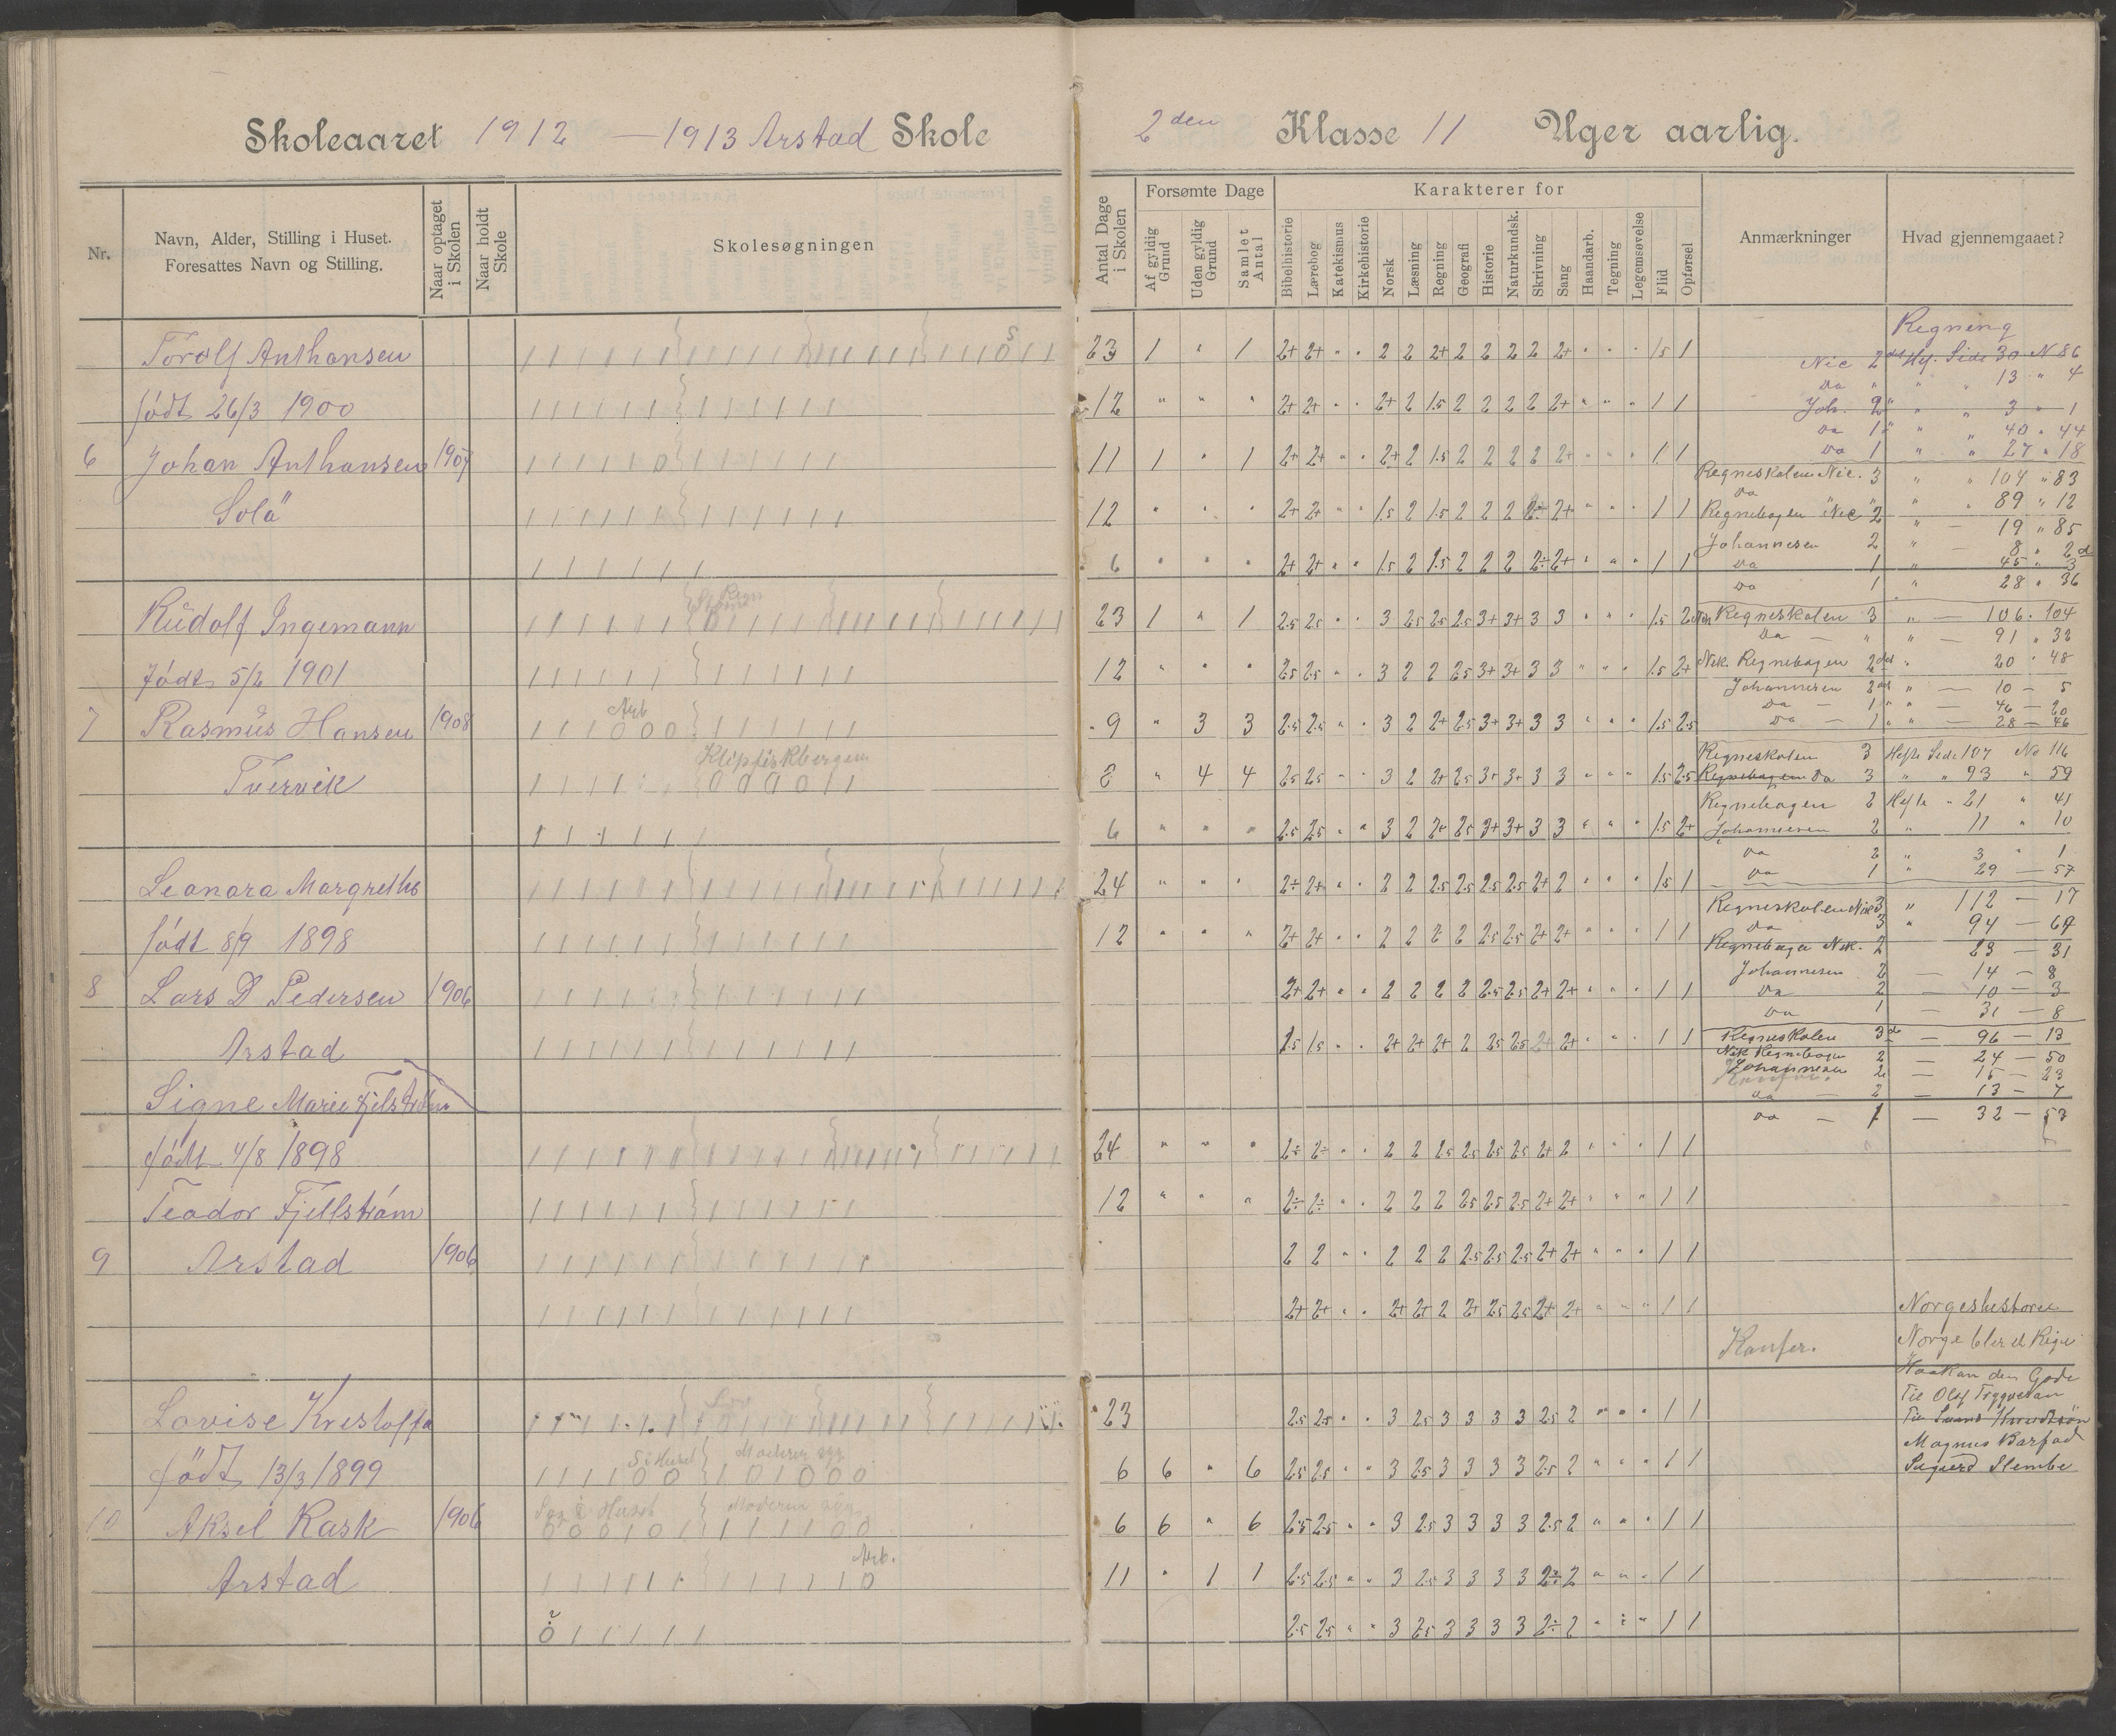 Skoleaaret 1912 — 1913 Arstad Skole
2den Klasse 11 Uger aarlig.
Nr.
Navn, Alder, Stilling i Huset.
Foresattes Navn og Stilling.
Naar optaget i Skolen
Naar holdt Skole
Skolesøgningen
Antal Dage i Skolen
Forsømte Dage
Af gyldig Grund
Uden gyldig Grund
Samlet Antal
Karakterer for
Bibelhistorie
Lærebog
Katekismus
Kirkehistorie
Norsk
Læsning
Regning
Geografi
Historie
Naturkundsk.
Skrivning
Sang
Haandarb.
Tegning
Legemsøvelse
Flid
Opførsel
Anmærkninger
Hvad gjennemgaaet?
Torolf Anthonsen
23 1 " 1 2+ 2+ " " 2 2 2+ 2 2 2 2 2+ " " " 1.5 1
født 26/3 1900
12 " " " 2+ 2+ " " 2+ 2 1.5 2 2 2 2 2+ " " " 1 1
6 Johan Anthonsen 1907
11 1 " 1 2+ 2+ " " 2+ 2 1.5 2 2 2 2 2+ " " " 1 1
Solå
12 " " " 2+ 2+ " " 1.5 2 1.5 2 2 2 2÷ 2+ " " " 1 1
6 " " " 2+ 2+ " " 1.5 2 1.5 2 2 2 2÷ 2+ " " " 1 1
Rudolf Ingemann
23 1 " 1 2.5 2.5 " " 3 2.5 2.5 2.5 3+ 3+ 3 3 " " " 1.5
Født 5/2 1901
12 " " " 2.5 2.5 " " 3 2 2 2.5 3+ 3+ 3 3 " " " 1.5 2+
7 Rasmus Hansen 1908
Arb
9 " 3 3 2.5 2.5 " " 3 2 2+ 2.5 3+ 3+ 3 3 " " " 1.5 2.5
Tvervik
Klipfiskbergen
8 " 4 4 2.5 2.5 " " 3 2 2+ 2.5 3+ 3+ 3 3 " " " 1.5 2.5
6 " " " 2.5 2.5 " " 3 2 2+ 2.5 3+ 3+ 3 3 " " " 1.5 2+
Leonora Margrethe
24 " " " 2÷ 2+ " " 2 2 2.5 2.5 2.5 2.5 2+ 2 " " " 1.5 1
født 8/9 1898
12 " " " 2+ 2+ " " 2 2 2 2 2.5 2.5 2+ 2+ " " " 1 1
8 Lars D Pedersen 1906
2+ 2+ " " 2 2 2 2 2.5 2.5 2+ 2+ " " " 1 1
Arstad
1.5 1.5 " " 2+ 2+ 2+ 2 2.5 2.5 2+ 2+ " " " 1 1
Signe Marie Fjelstrøm
født 4/8 1898
24 " " " 2÷ 2÷ " " 2 2 2.5 2.5 2.5 2.5 2+ 2 " " " 1 1
Teodor Fjellstrøm
12 " " " 2÷ 2÷ " " 2 2 2 2.5 2.5 2.5 2+ 2+ " " " 1 1
9 Arstad 1906
2 2 " " 2 2 2 2.5 2.5 2.5 2+ 2+ " " " 1 1
2+ 2+ " " 2+ 2+ 2 2+ 2.5 2.5 2+ 2+ " " " 1 1
Konfer.
Lovise Kristoffa
23 2.5 2.5 " " 3 2.5 3 3 3 3 2.5 2 " " " 1 1
født 13/3 1899
Moderen syg
6 6 " 6 2.5 2.5 " " 3 2.5 3 3 3 3 2.5 2 " " " 1 1
10 Aksel Rask 1906
Syg i Huset Moderen syg
6 6 " 6 2.5 2.5 " " 3 2.5 3 3 3 3 2.5 2 " " " 1 1
Arstad
Arb.
11 " 1 1 2.5 2.5 " " 3 2.5 3 3 3 3 2÷ 2 " " " 1 1
2.5 2.5 " " 3 2.5 3 3 3 3 2÷ 2 " " " 1 1
Regning
Nic 2det Hef. Side 30 N 86
Da " " " 13 " 4
Joh. 2 " " 3 " 1
Da 1 " " 40 " 44
Da 1 " " 27 " 18
Regneskolen Nic. 3 " " 104 " 83
Da " " 89 " 12
Regnebogen Nic 2 " — 19 " 85
Johannesen 2 " — 8 " 2
Da 1 " 45 " 3
Da 1 " 28 " 36
Regneskolen 3 " — 106 . 104
Da — " " — 91 " 32
Nik. Regnebogen 2det " 20 " 48
Johannesen 2det " — 10 — 5
Da — 1 " — 46 — 20
Da — 1 " — 28 — 46
Regneskolen 3 Hefte Side 107 No 116
Regnebogen Da 3 " " 93 " 59
Regnebogen 2 Hefte " 21 " 41
Johannesen 2 " 11 " 10
Da 2 " 3 " 1
Da 1 " 29 — 57
Regneskolen Nik 3 " 112 — 17
Da 3 " 94 — 64
Regnebogen Nik. 2 23 — 31
Johannesen 2 — 14 — 8
Da 2 — 10 — 3
Da 1 — 31 — 8
Regneskolen 3de — 96 — 13
Nik Regnebogen 2 — 24 — 50
Johannesen 2 — 15 — 23
Da — 2 — 13 — 7
Da — 1 — 32 — 53
Norgeshistorie
Norge blev et Rige
Haakon den Gode
Til Olaf Trygvesøn
Magnus Barfod
Sigurd Slembe